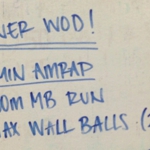 NER WOD!
MIN AMRAP
0m MB RUN
AX WALL BALLS (